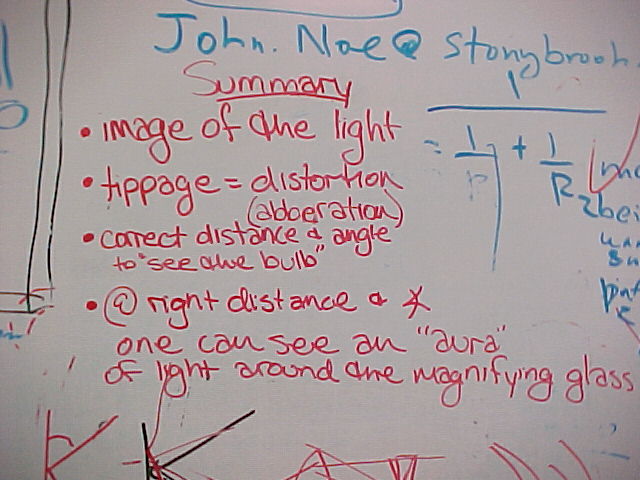 John. Noe @ Stonybrook.
Summary
• image of the light
• tippage = distortion
(abberation)
• correct distance & angle
to "see the bulb"
• @ right distance &
one can see an "aura"
of light around the magnifying glass
= 1 + 1
R2
bei